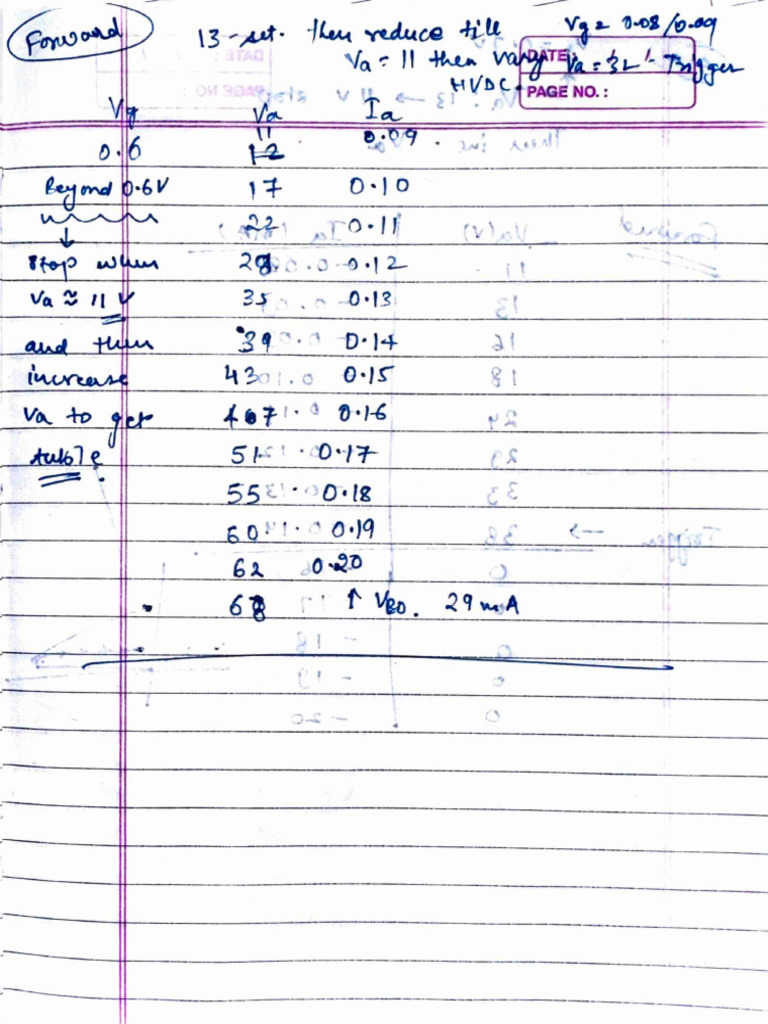 Forward
13 - set. then reduce till
Vg = 0.08/0.09
Va = 11 then vary
HVDC.
DATE:
Va = 32 - Trigger
PAGE NO. :
Vg Va Ia
0.6 11 0.09
Beyond 0.6V 17 0.10
22 0.11
↓
stop when 28 0.12
Va ≈ 11 V 35 0.13
and then 39 0.14
increase 43 0.15
Va to get 47 0.16
table. 51 0.17
55 0.18
60 0.19
62 0.20
68 ↑ VBO. 29 mA